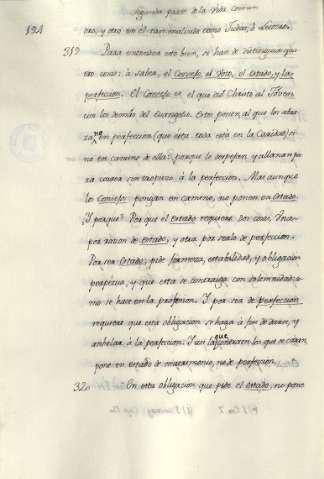 segunda parte de la Vida comun
194
oro, y otro en el tan como Judas, ó
319 Para entender esto bien, se han de distinguir qua
tro cosas: á saber, el Consejo, el Voto, el estado, y la
perfeccion. El Consejo es el que dió Christo al Joven
con los demás del evangelio. Este pone al que los abra
za, no en perfeccion (que esta cosa está en la Caridad) si
no en camino de ella; porque le despejan, y allanan pa
ra correr sin tropiezo á la perfeccion. Mas aunque
los Consejos pongan en camino, no ponen en Estado.
¿Y porqué? Por que el Estado requiere dos cosas. Una
por razon de estado, y otra por serlo de perfeccion.
Por ser Estado, pide firmeza, estabilidad, y obligacion
perpetua, y que esta se contraiga con solemnidad, co
mo se hace en la profesion. Y por ser de perfeccion
requiere que esta obligacion se haga á fin de
anhelar á la perfeccion. Y asi la que contraen los que se casan
pone en estado de matrimonio, no de perfeccion.
320 En esta obligacion que pide el estado, no pone